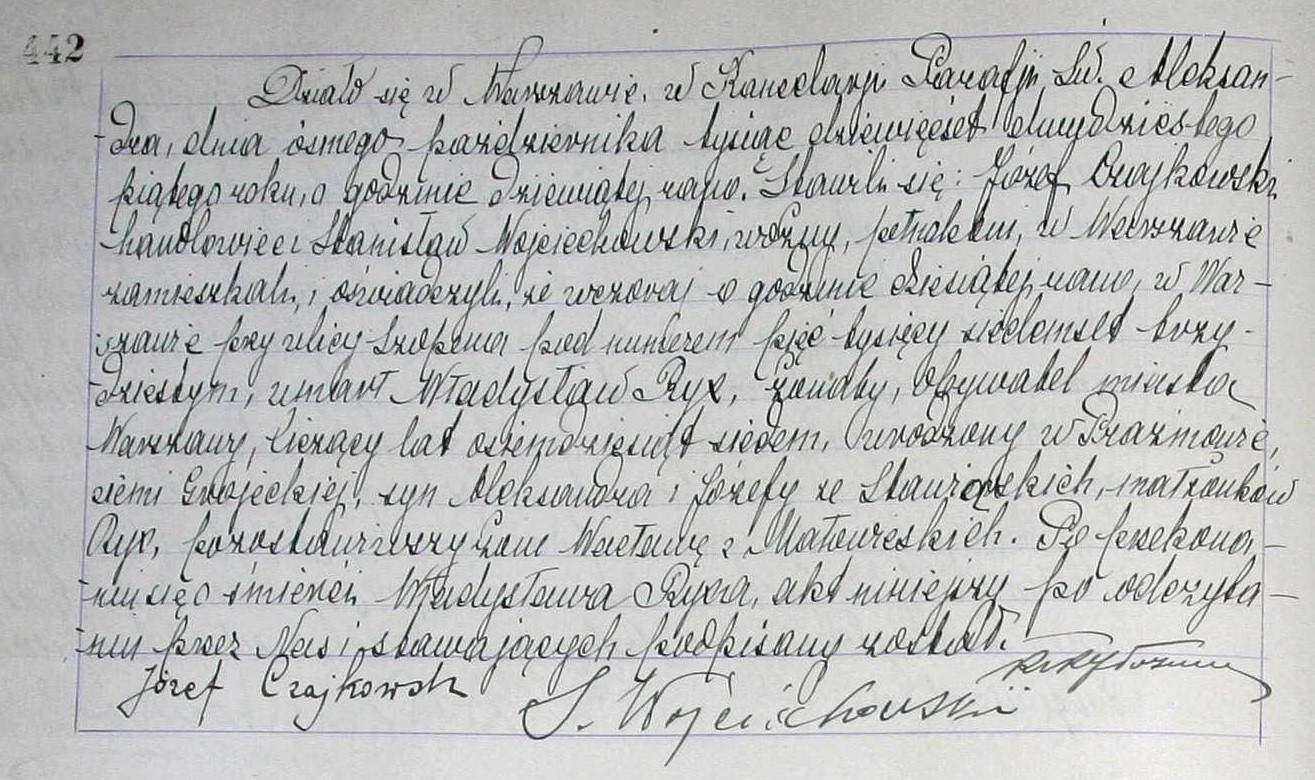 442
Działo się w Warszawie, w Kancelarji Parafji Św. Aleksan-
-dra, dnia ósmego października tysiąc dziewięćset dwudziestego
piątego roku, o godzinie dziewiątej rano. Stawili się: Józef Czajkowski
handlowiec i Stanisław Wojciechowski, woźny, pełnoletni, w Warszawie
zamieszkali, i oświadczyli, że wczoraj o godzinie dziesiątej rano, w War-
-szawie przy ulicy Szopena pod numerem pięć tysięcy siedemset trzy-
-dziestym, umarł Władysław Ryx, żonaty, Obywatel miasta
Warszawy, liczący lat osiemdziesiąt siedem, urodzony w Prażmowie,
ziemi Grojeckiej, syn Aleksandra i Józefy ze małżonków
Ryx, pozostawiwszy żonę Wacławę z Po przekona-
-niu się o śmierci Władysława Ryxa, akt niniejszy po odczyta-
-niu przez Nas i stawających podpisany został.
Józef Czajkowski
S. Wojciechowski